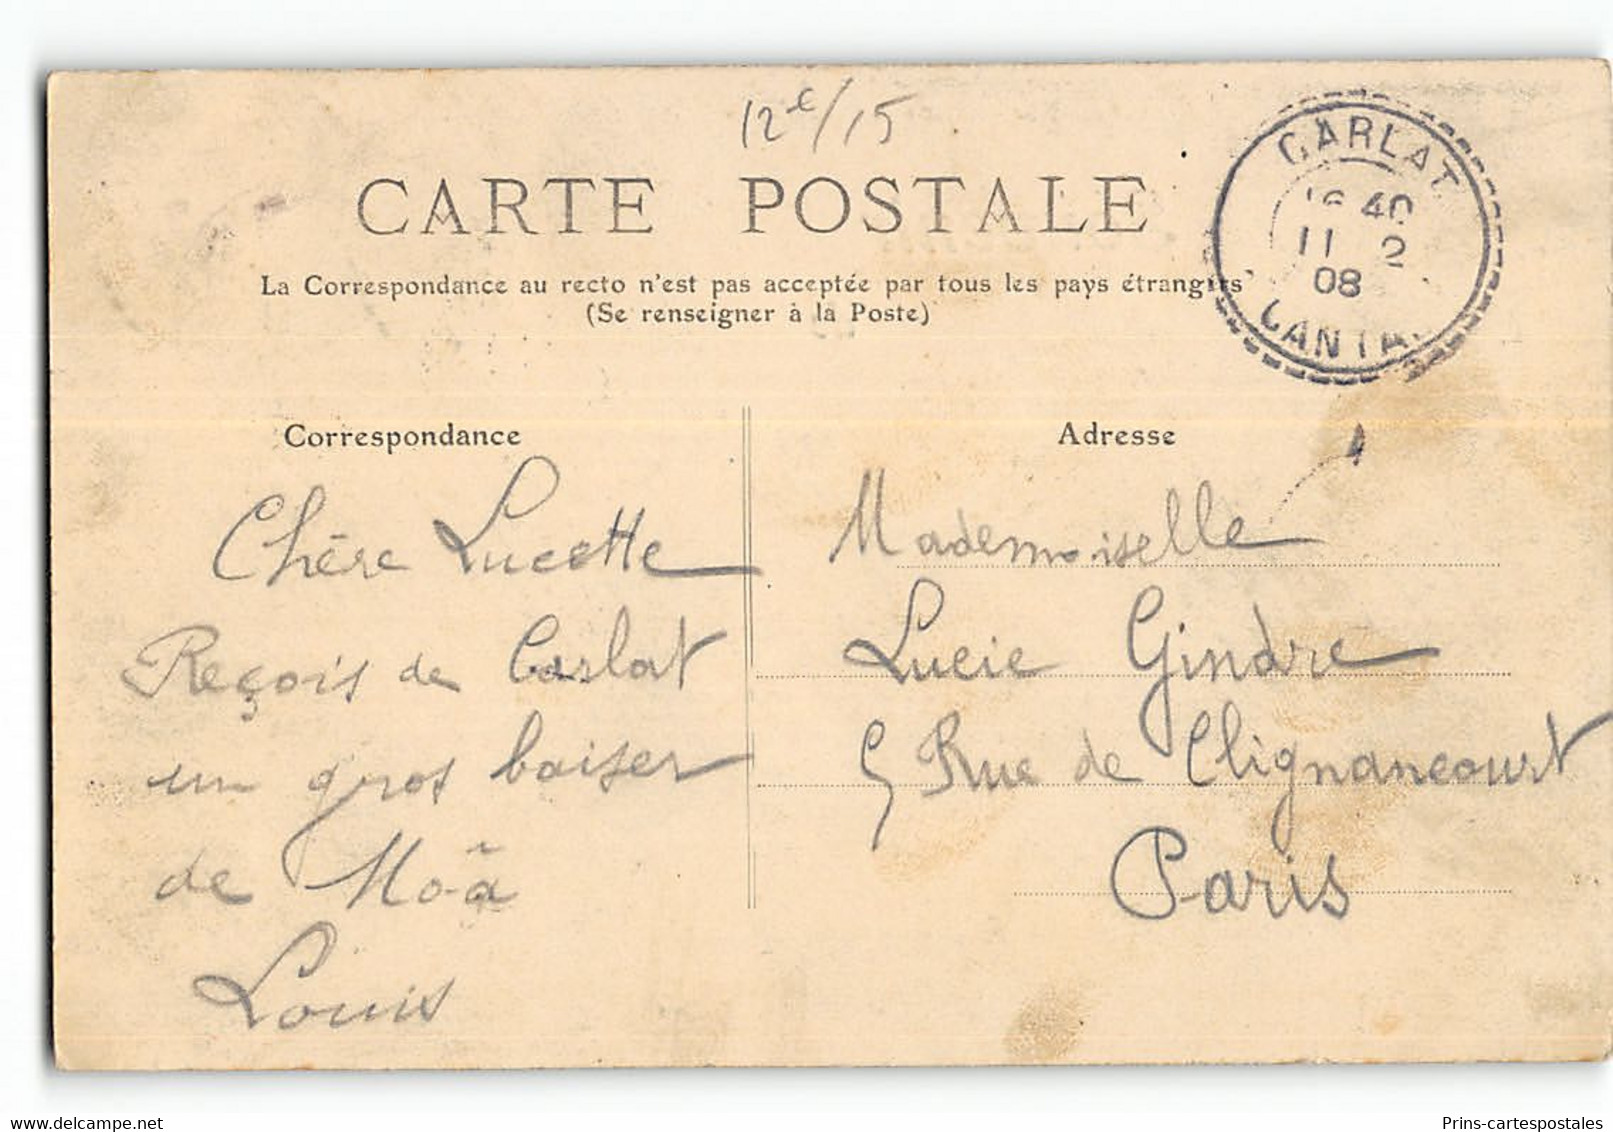 12e/15
CARTE POSTALE
La Correspondance au recto n'est pas acceptée par tous les pays étrangers
(Se renseigner à la Poste)
CARLAT
16 40
11 2
08
CANTAL
Correspondance
Chère Lucette
Reçois de Carlat
un gros baiser
de Mo-â
Louis
Adresse
Mademoiselle
Lucie Gindre
5 Rue de Clignancourt
Paris
Prins-cartespostales